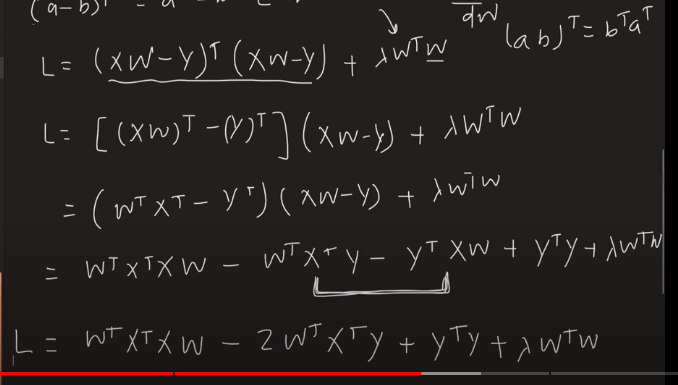 (a-b)ᵀ = a
dw
(ab)ᵀ = bᵀaᵀ
L = (XW - Y)ᵀ (XW - Y) + λWᵀW
L = [(XW)ᵀ - (Y)ᵀ] (XW - Y) + λWᵀW
= (WᵀXᵀ - Yᵀ) (XW - Y) + λWᵀW
= WᵀXᵀXW - WᵀXᵀy - yᵀXW + yᵀy + λWᵀW
L = WᵀXᵀXW - 2WᵀXᵀy + yᵀy + λWᵀW